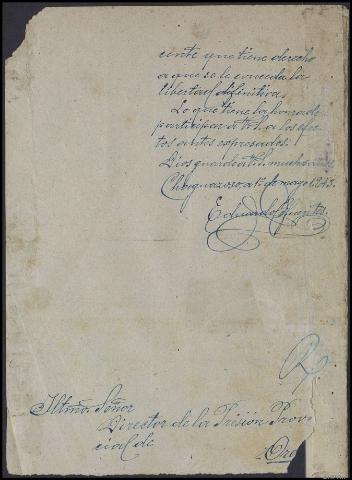 ente que tiene derecho
a que se le conceda la
libertad difinitiva.
Lo que tiene la honra de
participar a V.S. a los efec
tos antes espresados.
Dios guarde a V.S. muchos años
1º de mayo 1943.
Eduardo
Iltmo. Señor
Director de la Prisión Provi
cial de